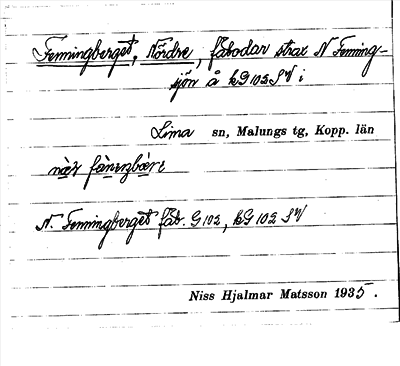 Femmingberget, Nördre, fäbodar strax N Femming-
sjön å kG 102 SV i
Lima sn, Malungs tg, Kopp. län
N. Femmingberget fäb. G 102, kG 102 SV
Niss Hjalmar Matsson 1935.